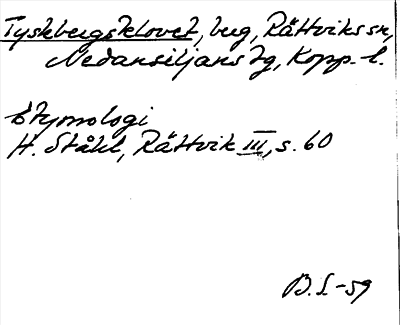 Tyskbergsklovet, berg, Rättviks sn,
Nedansiljans tg, Kopp. l.
Etymologi
H. Ståhl, Rättvik III, s. 60
B.L-59